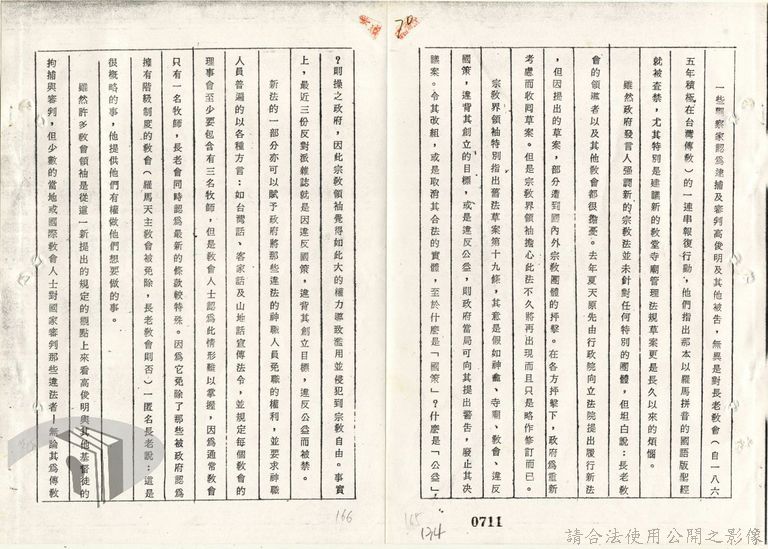 一些觀察家認為逮捕及審判高俊明及其他被告,無異是對長老教會(自一八六
五年積極在台灣傳教)的一連串報復行動,他們指出那本以羅馬拼音的國語版聖經
就被查禁,尤其特別是建議新的教堂寺廟管理法規草案更是長久以來的煩惱。
雖然政府發言人強調新的宗教法並未針對任何特別的團體,但坦白說:長老教
會的領導者以及其他教會都很擔憂。去年夏天原先由行政院向立法院提出履行新法
,但因提出的草案,部分遭到國內外宗教團體的抨擊。在各方抨擊下,政府為重新
考慮而收回草案。但是宗教界領袖擔心此法不久將再出現而且只是略作修訂而已。
宗教界領袖特別指出舊法草案第十九條,其意是假如神龕、寺廟、教會、違反
國策,違背其創立的目標,或是違反公益,則政府當局可向其提出警告,廢止其決
議案。令其改組,或是取消其合法的實體,至於什麼是「國策」?什麼是「公益」
?則操之政府,因此宗教領袖覺得如此大的權力導致濫用並侵犯到宗教自由。事實
上,最近三份反對派雜誌就是因違反國策,違背其創立目標,違反公益而被禁。
新法的一部分亦可以賦予政府將那些違法的神職人員免職的權利,並要求神職
人員普遍的以各種方言:如台灣話、客家話及山地話宣傳法令,並規定每個教會的
理事會至少要包含有三名牧師,但是教會人士認為此情形難以掌握,因為通常教會
只有一名牧師,長老會同時認為最新的條款較特殊。因為它免除了那些被政府認為
擁有階級制度的教會(羅馬天主教會被免除,長老教會則否)一匿名長老說:這是
很概略的事,他提供他們有權做他們想要做的事。
雖然許多教會領袖是從這一新提出的規定的觀點上來看高俊明與其他基督徒的
拘捕與審判,但少數的當地或國際教會人士對國家審判那些違法者—無論其為傳教
166
165
134
0711
請合法使用公開之影像